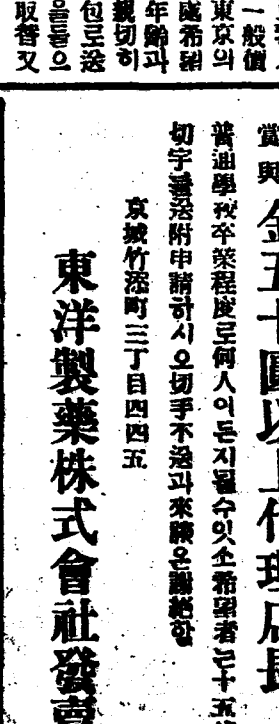 東京의
一般價
感希望
年齡과
親切히
包로送
을들으
取替又
賞與金五十圓以上代理店長
普通學校卒業程度로何人이든지될수잇소希望者는十五
切手送附申請하시오切手不送과來談은謝絶함
京城竹添町三丁目四四五
東洋製藥株式會社發賣